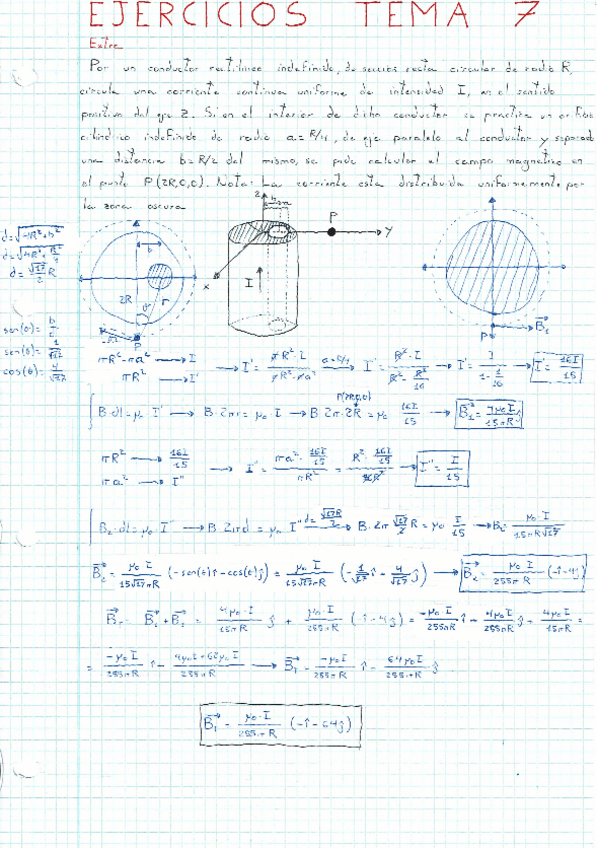 EJERCICIOS TEMA 7
Extra
Por un conductor rectilíneo indefinido, de sección recta circular de radio R,
circula una corriente continua uniforme de intensidad I, en el sentido
positivo del eje z. Si en el interior de dicho conductor se practica un orificio
cilíndrico indefinido de radio a=R/4, de eje paralelo al conductor y separado
una distancia b=R/2 del mismo, se pide calcular el campo magnético en
el punto P(2R,0,0). Nota: La corriente está distribuida uniformemente por
la zona oscura
z
b
P
y
x
I
b
2R
r
θ
P
P B₁
d=√(4R²+b²)
d=√(4R²+R²/4)
d=√17/2 R
sen(θ)=b/
sen(θ)=1/√17
cos(θ)=4/√17
πR²-πa² → I
πR² → I'
→ I'= πR²·I/(πR²-πa²) a=R/4 → I'= R²·I/(R²-R²/16) → I'= I/(1-1/16) → I'= 16I/15
∫B·dl=μ₀ I' → B·2πr=μ₀·I → P(2R,0,0) B·2π·2R=μ₀ 16I/15 → B₁= 4μ₀I/15πR
πR² → 16I/15
πa² → I''
→ I''= πa²·16I/15/πR² = R²·16I/15/16R² → I''= I/15
∫B₂·dl=μ₀·I'' → B·2πd=μ₀ I'' d=√17R/2 → B·2π √17/2 R=μ₀ I/15 → B₂= μ₀·I/15πR√17
B₂= μ₀ I/15√17πR (-sen(θ)î-cos(θ)ĵ) = μ₀ I/15√17πR (-1/√17 î-4/√17 ĵ) → B₂= μ₀ I/255πR (-î-4ĵ)
B_T= B₁+B₂ = 4μ₀·I/15πR ĵ + μ₀·I/255πR (-î-4ĵ) = -μ₀ I/255πR î -4μ₀I/255πR ĵ + 4μ₀ I/15πR =
= -μ₀I/255πR î- 4μ₀I+68μ₀I/255πR → B_T= -μ₀I/255πR î- 64μ₀I/255πR ĵ
B_T= μ₀·I/255·πR (-î-64ĵ)